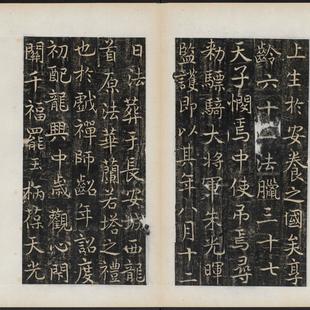 上生於安養之國矣享
齡六十法臘三十七
天子憫焉中使弔焉尋
勑驃騎大將軍朱光暉
監護即以其年八月十二
日法葬于長安城西龍
首原法華蘭若塔之禮
也於戲禪師齠年詔度
初配龍興中歲觀心閑
關千福罷王柄葆天光